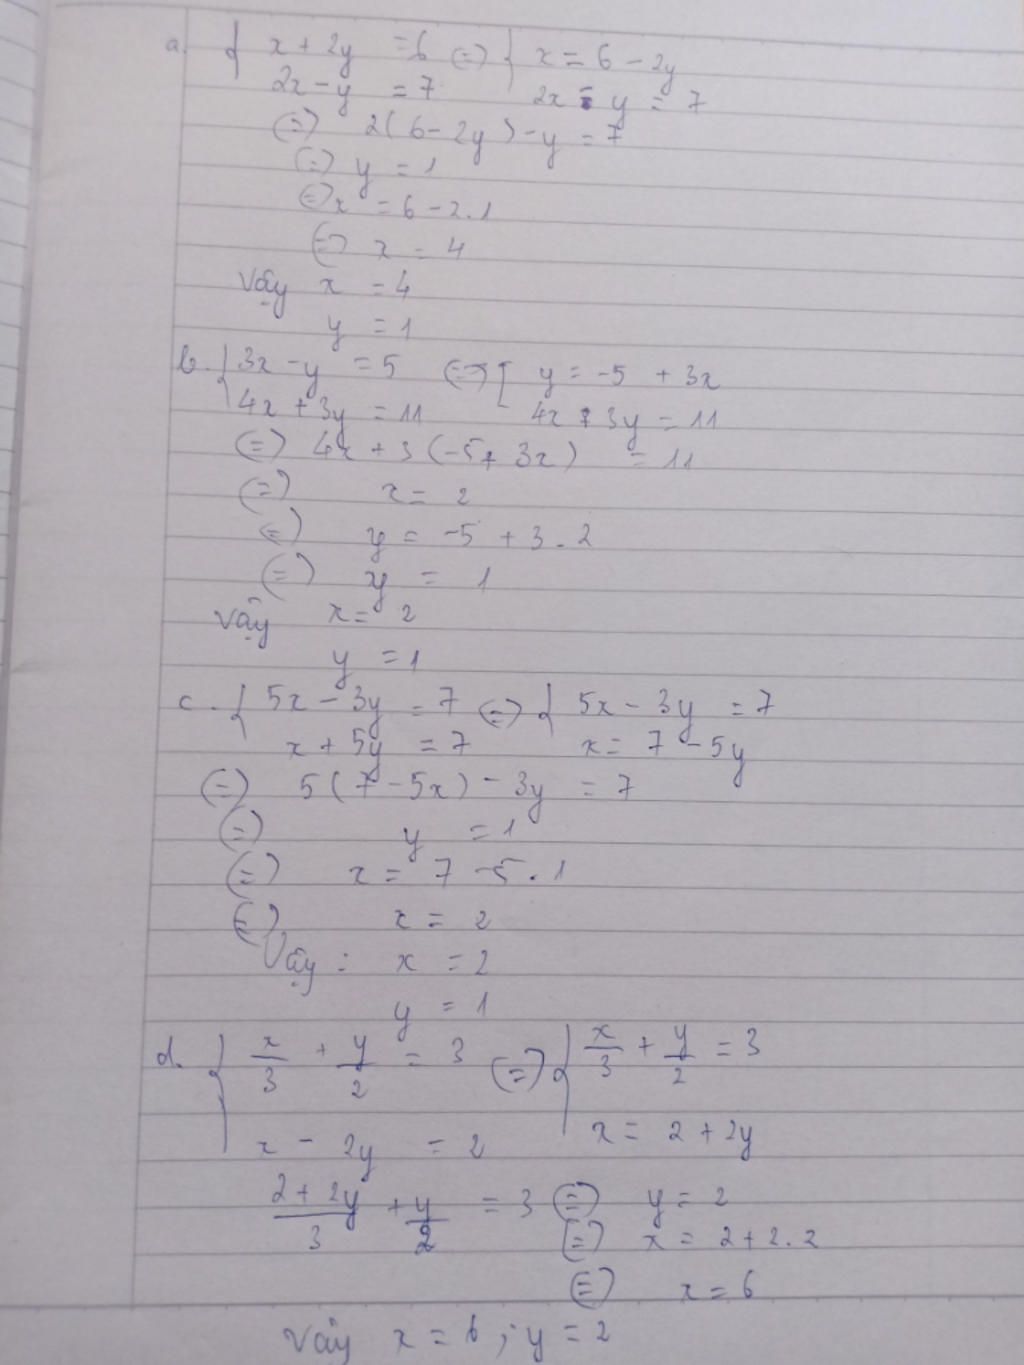 a. { x + 2y = 6 (=) { x = 6 - 2y
2x - y = 7 2x - y = 7
(=) 2(6 - 2y) - y = 7
(=) y = 1
(=) x = 6 - 2.1
(=) x = 4
Vậy x = 4
y = 1
b. { 3x - y = 5 (=) [ y = -5 + 3x
4x + 3y = 11 4x + 3y = 11
(=) 4x + 3(-5 + 3x) = 11
(=) x = 2
(=) y = -5 + 3.2
(=) y = 1
Vậy x = 2
y = 1
c. { 5x - 3y = 7 (=) { 5x - 3y = 7
x + 5y = 7 x = 7 - 5y
(=) 5(7 - 5x) - 3y = 7
(=) y = 1
(=) x = 7 - 5.1
(=) x = 2
Vậy : x = 2
y = 1
d. { x/3 + y/2 = 3 (=) { x/3 + y/2 = 3
x - 2y = 2 x = 2 + 2y
(2 + 2y)/3 + y/2 = 3 (=) y = 2
(=) x = 2 + 2.2
(=) x = 6
Vậy x = 6 ; y = 2